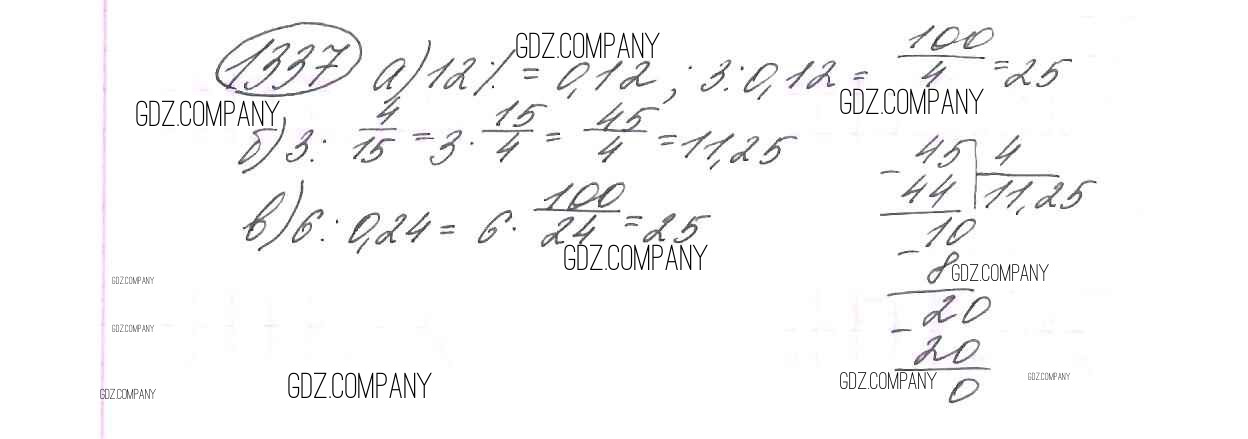 GDZ.COMPANY
1337 а) 12% = 0,12 ; 3:0,12 = 100/4 = 25
GDZ.COMPANY GDZ.COMPANY
б) 3 : 4/15 = 3 · 15/4 = 45/4 = 11,25
в) 6 : 0,24 = 6 · 100/24 = 25
GDZ.COMPANY
- 45 | 4
44 | 11,25
- 10
8 GDZ.COMPANY
- 20
20
0
GDZ.COMPANY
GDZ.COMPANY
GDZ.COMPANY GDZ.COMPANY GDZ.COMPANY GDZ.COMPANY